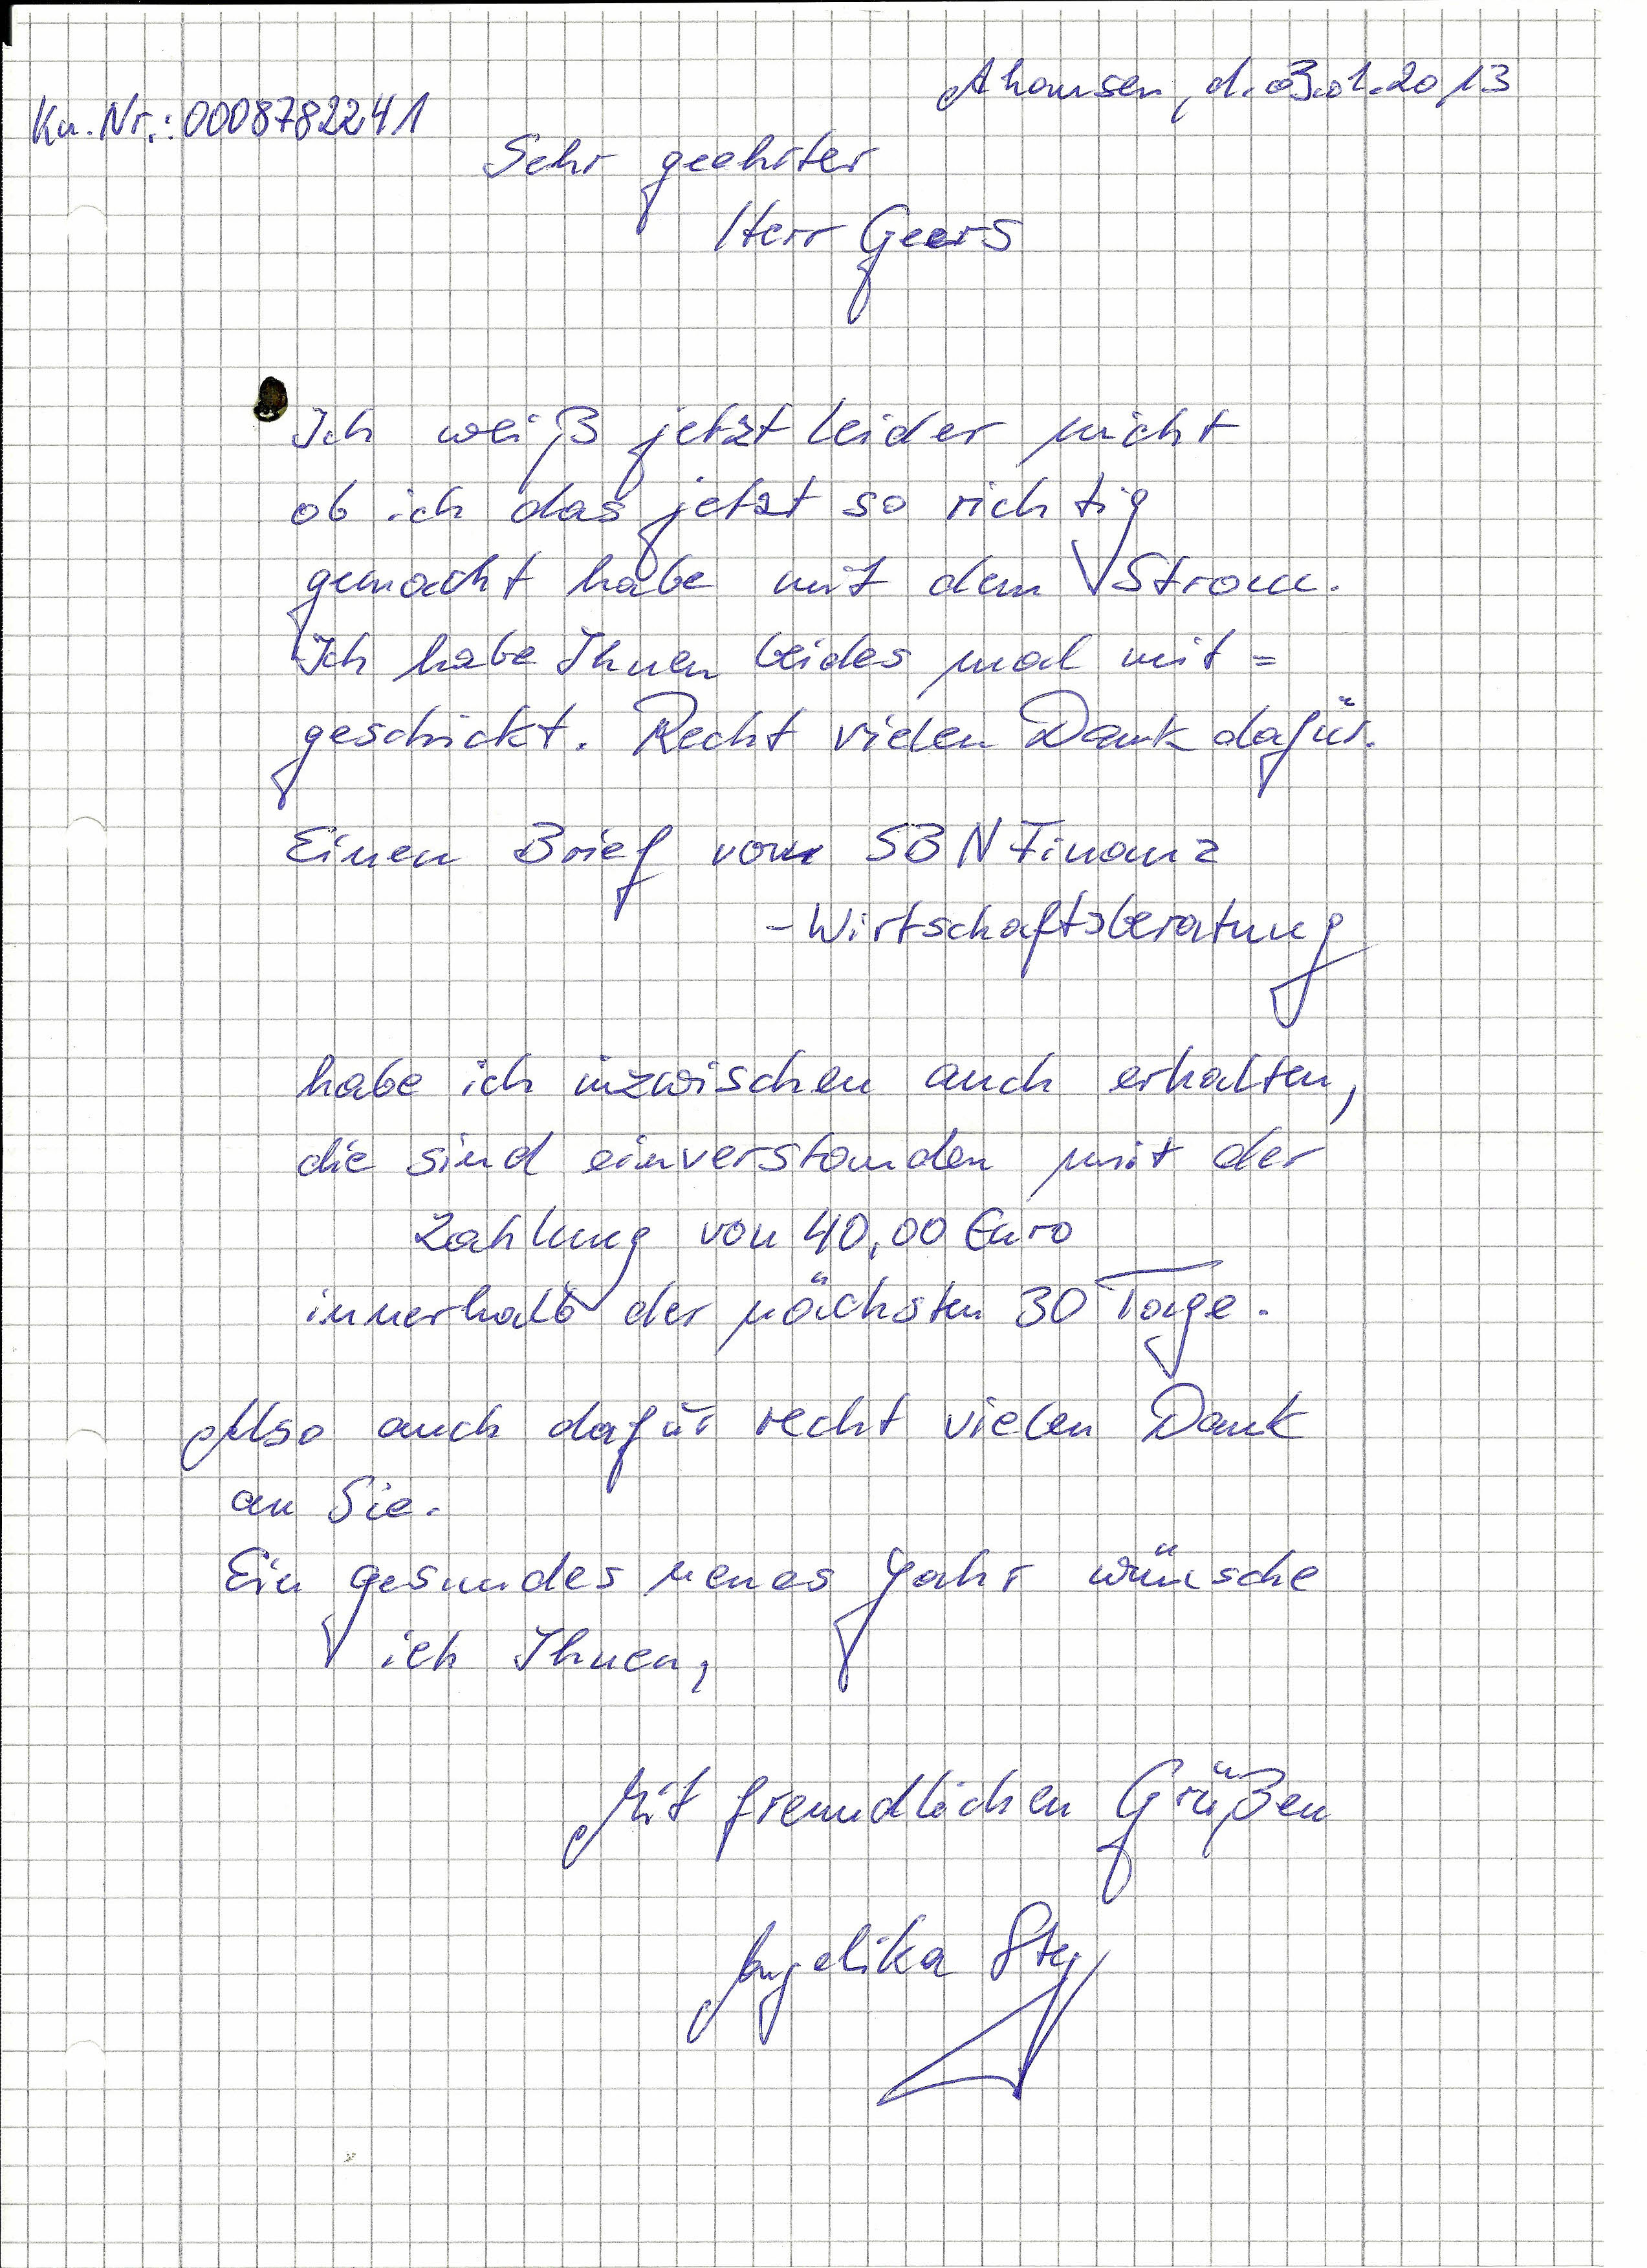 Ahausen, d. 03.01.2013
Kn.Nr.: 0008782241
Sehr geehrter
Herr Geers
Ich weiß jetzt leider nicht
ob ich das jetzt so richtig
gemacht habe mit dem Strom.
Ich habe Ihnen beides mal mit=
geschickt. Recht vielen Dank dafür.
Einen Brief vom SBN Finanz
-Wirtschaftsberatung
habe ich inzwischen auch erhalten,
die sind einverstanden mit der
Zahlung von 40,00 Euro
innerhalb der nächsten 30 Tage.
Also auch dafür recht vielen Dank
an Sie.
Ein gesundes neues Jahr wünsche
ich Ihnen,
Mit freundlichen Grüßen
Angelika